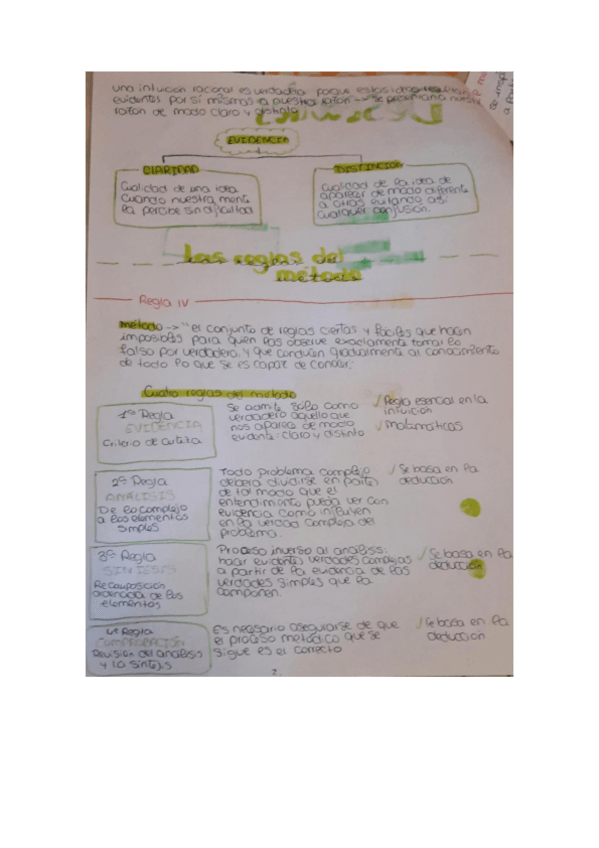 una intuición racional es verdadera porque estas ideas resultan
evidentes por sí mismas a nuestra razón -> se presentan a nuestra
razón de modo claro y distinto
EVIDENCIA
CLARIDAD
Cualidad de una idea
cuando nuestra mente
la percibe sin dificultad
DISTINCIÓN
Cualidad de la idea de
aparecer de modo diferente
a otras evitando así
cualquier confusión.
Las reglas del
método
Regla IV
método -> "el conjunto de reglas ciertas y fáciles que hacen
imposibles para quien las observe exactamente tomar lo
falso por verdadero, y que conducen gradualmente al conocimiento
de todo lo que se es capaz de conocer."
Cuatro reglas del metodo
1ª Regla
EVIDENCIA
Criterio de certeza
Se admite solo como
verdadero aquello que
nos aparezca de modo
evidente: claro y distinto
✓ Regla esencial en la
intuición
✓ Matemáticas
2ª Regla
ANÁLISIS
De lo complejo
a los elementos
simples
Todo problema complejo
deberá dividirse en partes
de tal modo que el
entendimiento pueda ver con
evidencia como influyen
en la verdad compleja del
problema.
✓ Se basa en la
deducción
3ª Regla
SINTESIS
Recomposición
ordenada de los
elementos
Proceso inverso al analisis:
hacer evidentes verdades complejas
a partir de la evidencia de las
verdades simples que la
componen.
✓ Se basa en la
deducción
4ª Regla
COMPROBACIÓN
Revisión del analisis
y la sintesis
Es necesario asegurarse de que
el proceso metódico que se
sigue es el correcto
✓ Se basa en la
deducción
2.